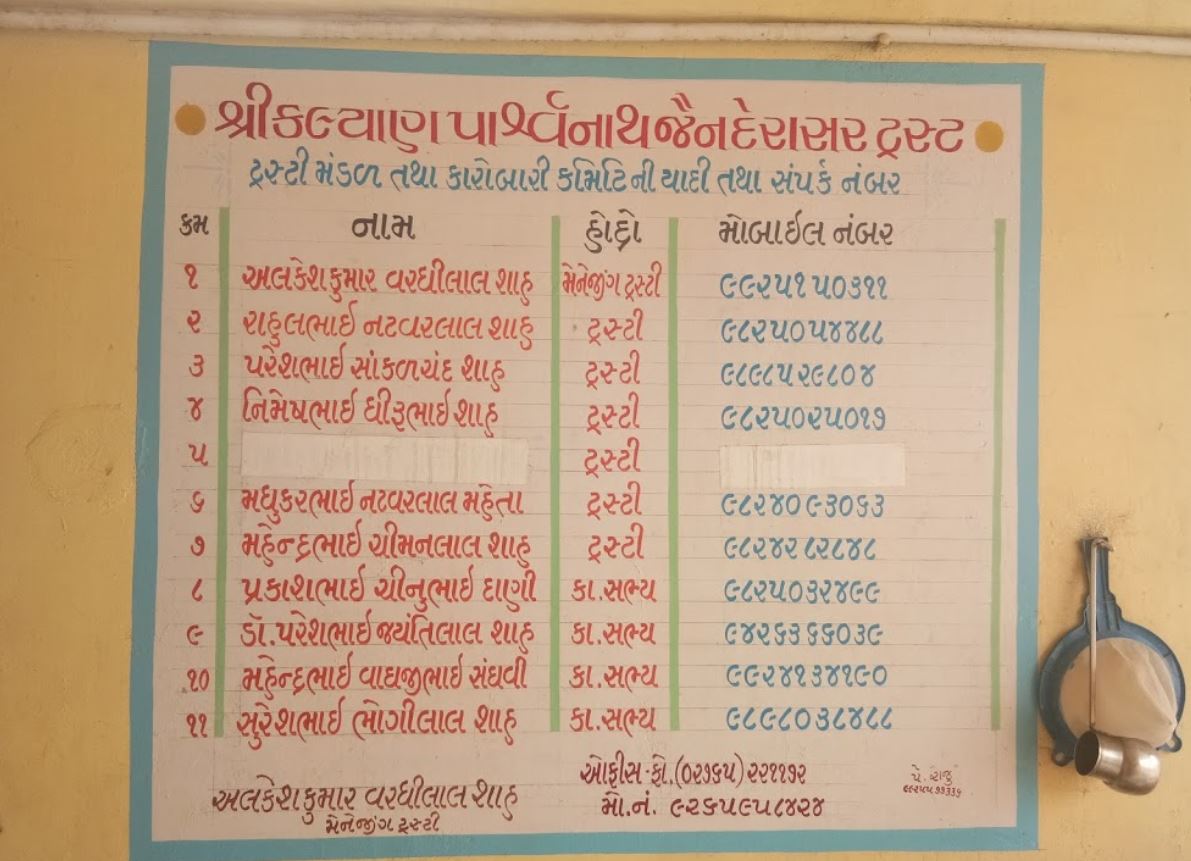 શ્રી કલ્યાણ પાર્શ્વનાથ જૈન દેરાસર ટ્રસ્ટ
ટ્રસ્ટી મંડળ તથા કારોબારી કમિટિની યાદી તથા સંપર્ક નંબર
ક્રમ નામ હોદ્દો મોબાઇલ નંબર
૧ અલકેશકુમાર વરધીલાલ શાહ મેનેજીંગ ટ્રસ્ટી ૯૯૨૫૧૫૦૩૧૧
૨ રાહુલભાઇ નટવરલાલ શાહ ટ્રસ્ટી ૯૮૨૫૦૫૪૪૮૮
૩ પરેશભાઇ સાંકળચંદ શાહ ટ્રસ્ટી ૯૮૯૮૫૨૯૮૦૪
૪ નિમેષભાઇ ધીરૂભાઇ શાહ ટ્રસ્ટી ૯૮૨૫૦૨૫૦૧૭
૫ ટ્રસ્ટી
૬ મધુકરભાઇ નટવરલાલ મહેતા ટ્રસ્ટી ૯૮૨૪૦૯૩૦૬૩
૭ મહેન્દ્રભાઇ ચીમનલાલ શાહ ટ્રસ્ટી ૯૮૨૪૨૮૨૮૪૮
૮ પ્રકાશભાઇ ચીનુભાઇ દાણી કા.સભ્ય ૯૮૨૫૦૩૨૪૯૯
૯ ડૉ.પરેશભાઇ જયંતિલાલ શાહ કા.સભ્ય ૯૪૨૬૩૬૬૦૩૯
૧૦ મહેન્દ્રભાઇ વાઘજીભાઇ સંઘવી કા.સભ્ય ૯૯૨૪૧૩૪૧૯૦
૧૧ સુરેશભાઇ ભોગીલાલ શાહ કા.સભ્ય ૯૮૯૮૦૩૮૪૮૮
ઓફીસ-ફો.(૦૨૭૬૫) ૨૨૧૧૭૨
અલકેશકુમાર વરધીલાલ શાહ મો.નં. ૯૨૬૫૯૫૮૪૨૪
મેનેજીંગ ટ્રસ્ટી
પે. રાજુ